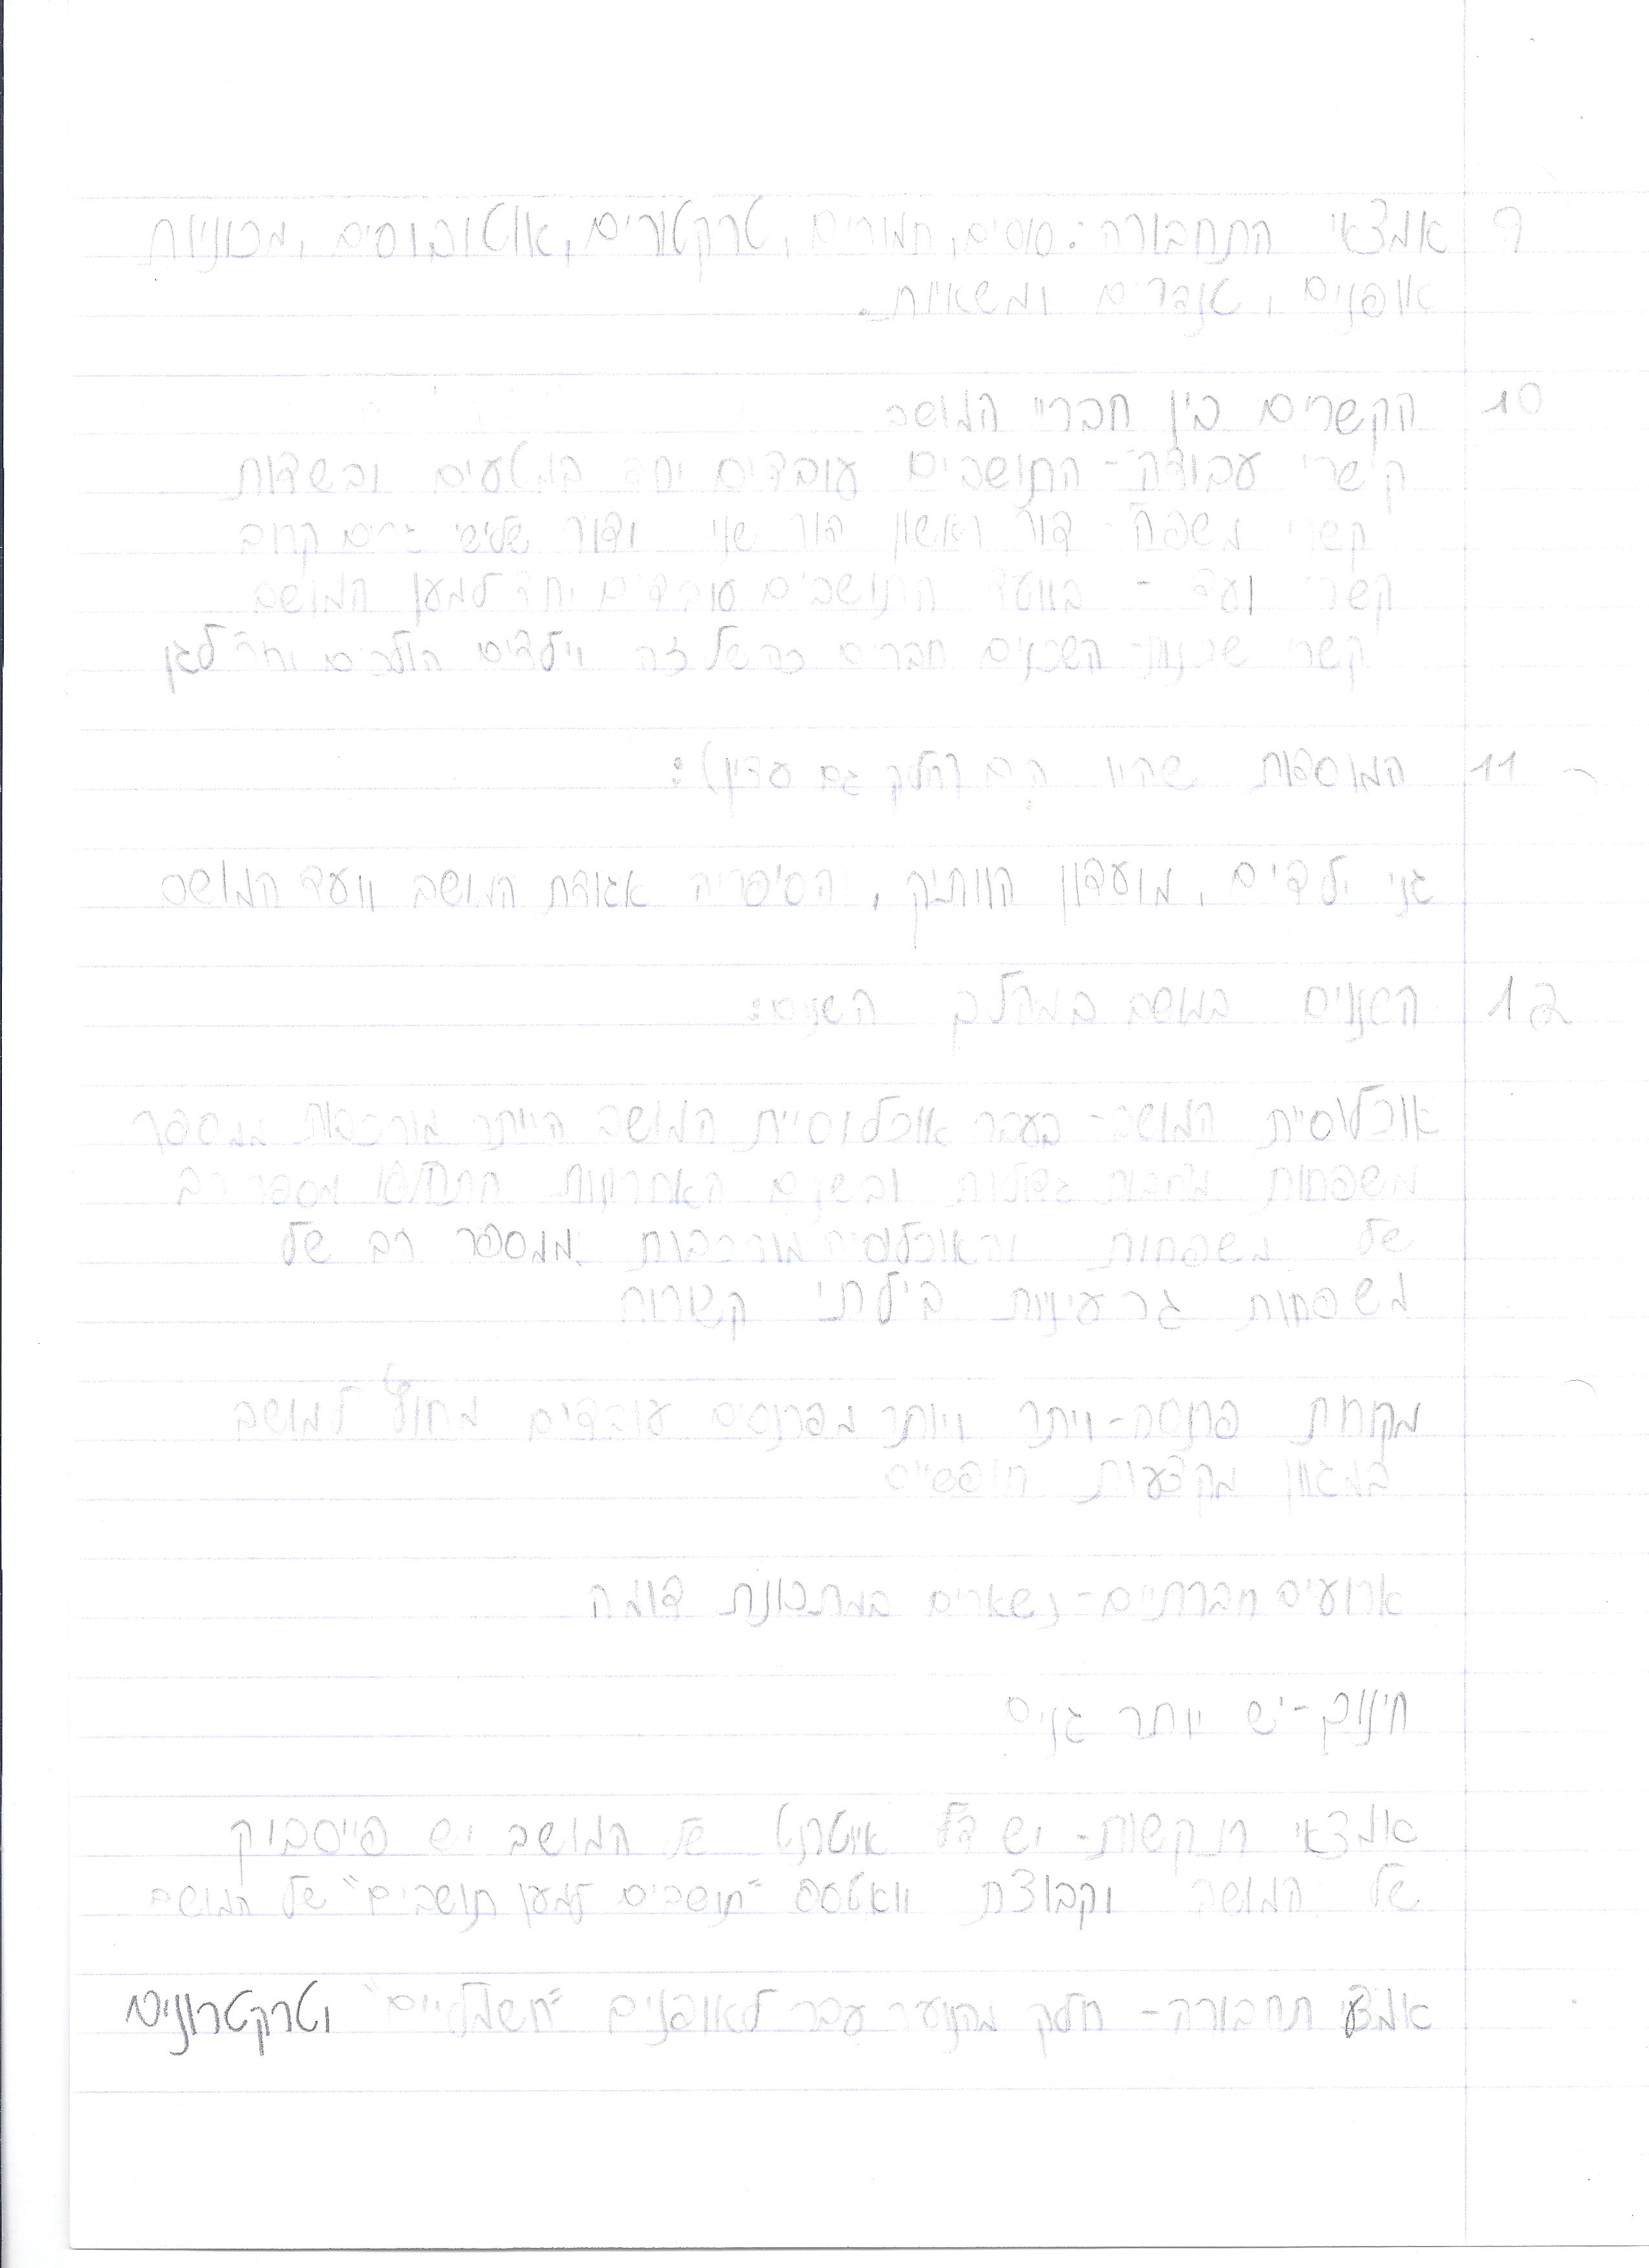 9 אמצאי התחבורה: סוסים, חמורים, טרקטורים, אוטובוסים, מכוניות
אופנים, טנדרים ומשאיות.
10 הקשרים בין חבריי המושב
קישרי עבודה - התושבים עובדים יחד במטעים ובשדות
קשרי משפחה - דור ראשון דור שני ודור שלישי גרים קרוב
קשרי ועד - בוועד התושבים עובדים יחד למען המושב
קשרי שכנות - השכנים חברים זה של זה וילדים הולכים יחד לגן
11 המוסדות שהיו הם (חלק גם עדין):
גני ילדים, מועדון הוותיק, הסיפריה אגודת המושב וועד המושב
12 השנוים במושב במהלך השנים:
אוכלוסיית המושב - בעבר אוכלוסיית המושב הייתה מורכבות ממספר
משפחות גדולות ובשנים האחרונות מספר רב
של משפחות והאוכלוסיה מורכבות ממספר רב של
משפחות גרעיניות בילתי קשורות
מקורות פרנסה - ויותר מפרנסים עובדים מחוץ למושב
במגוון מקצעות חופשיים
ארועים חברתיים - נשארים במתכונת דומה
חינוך - יש יותר גנים
אמצאי תקשות - יש דף אינטרנט של המושב יש פייסבוק
של המושב וקבוצת וואטספ "תושבים למען תושבים" של המושב
אמצעי תחבורה - חלק מהנוער עבר לאופנים "חשמליים" וטרקטרונים